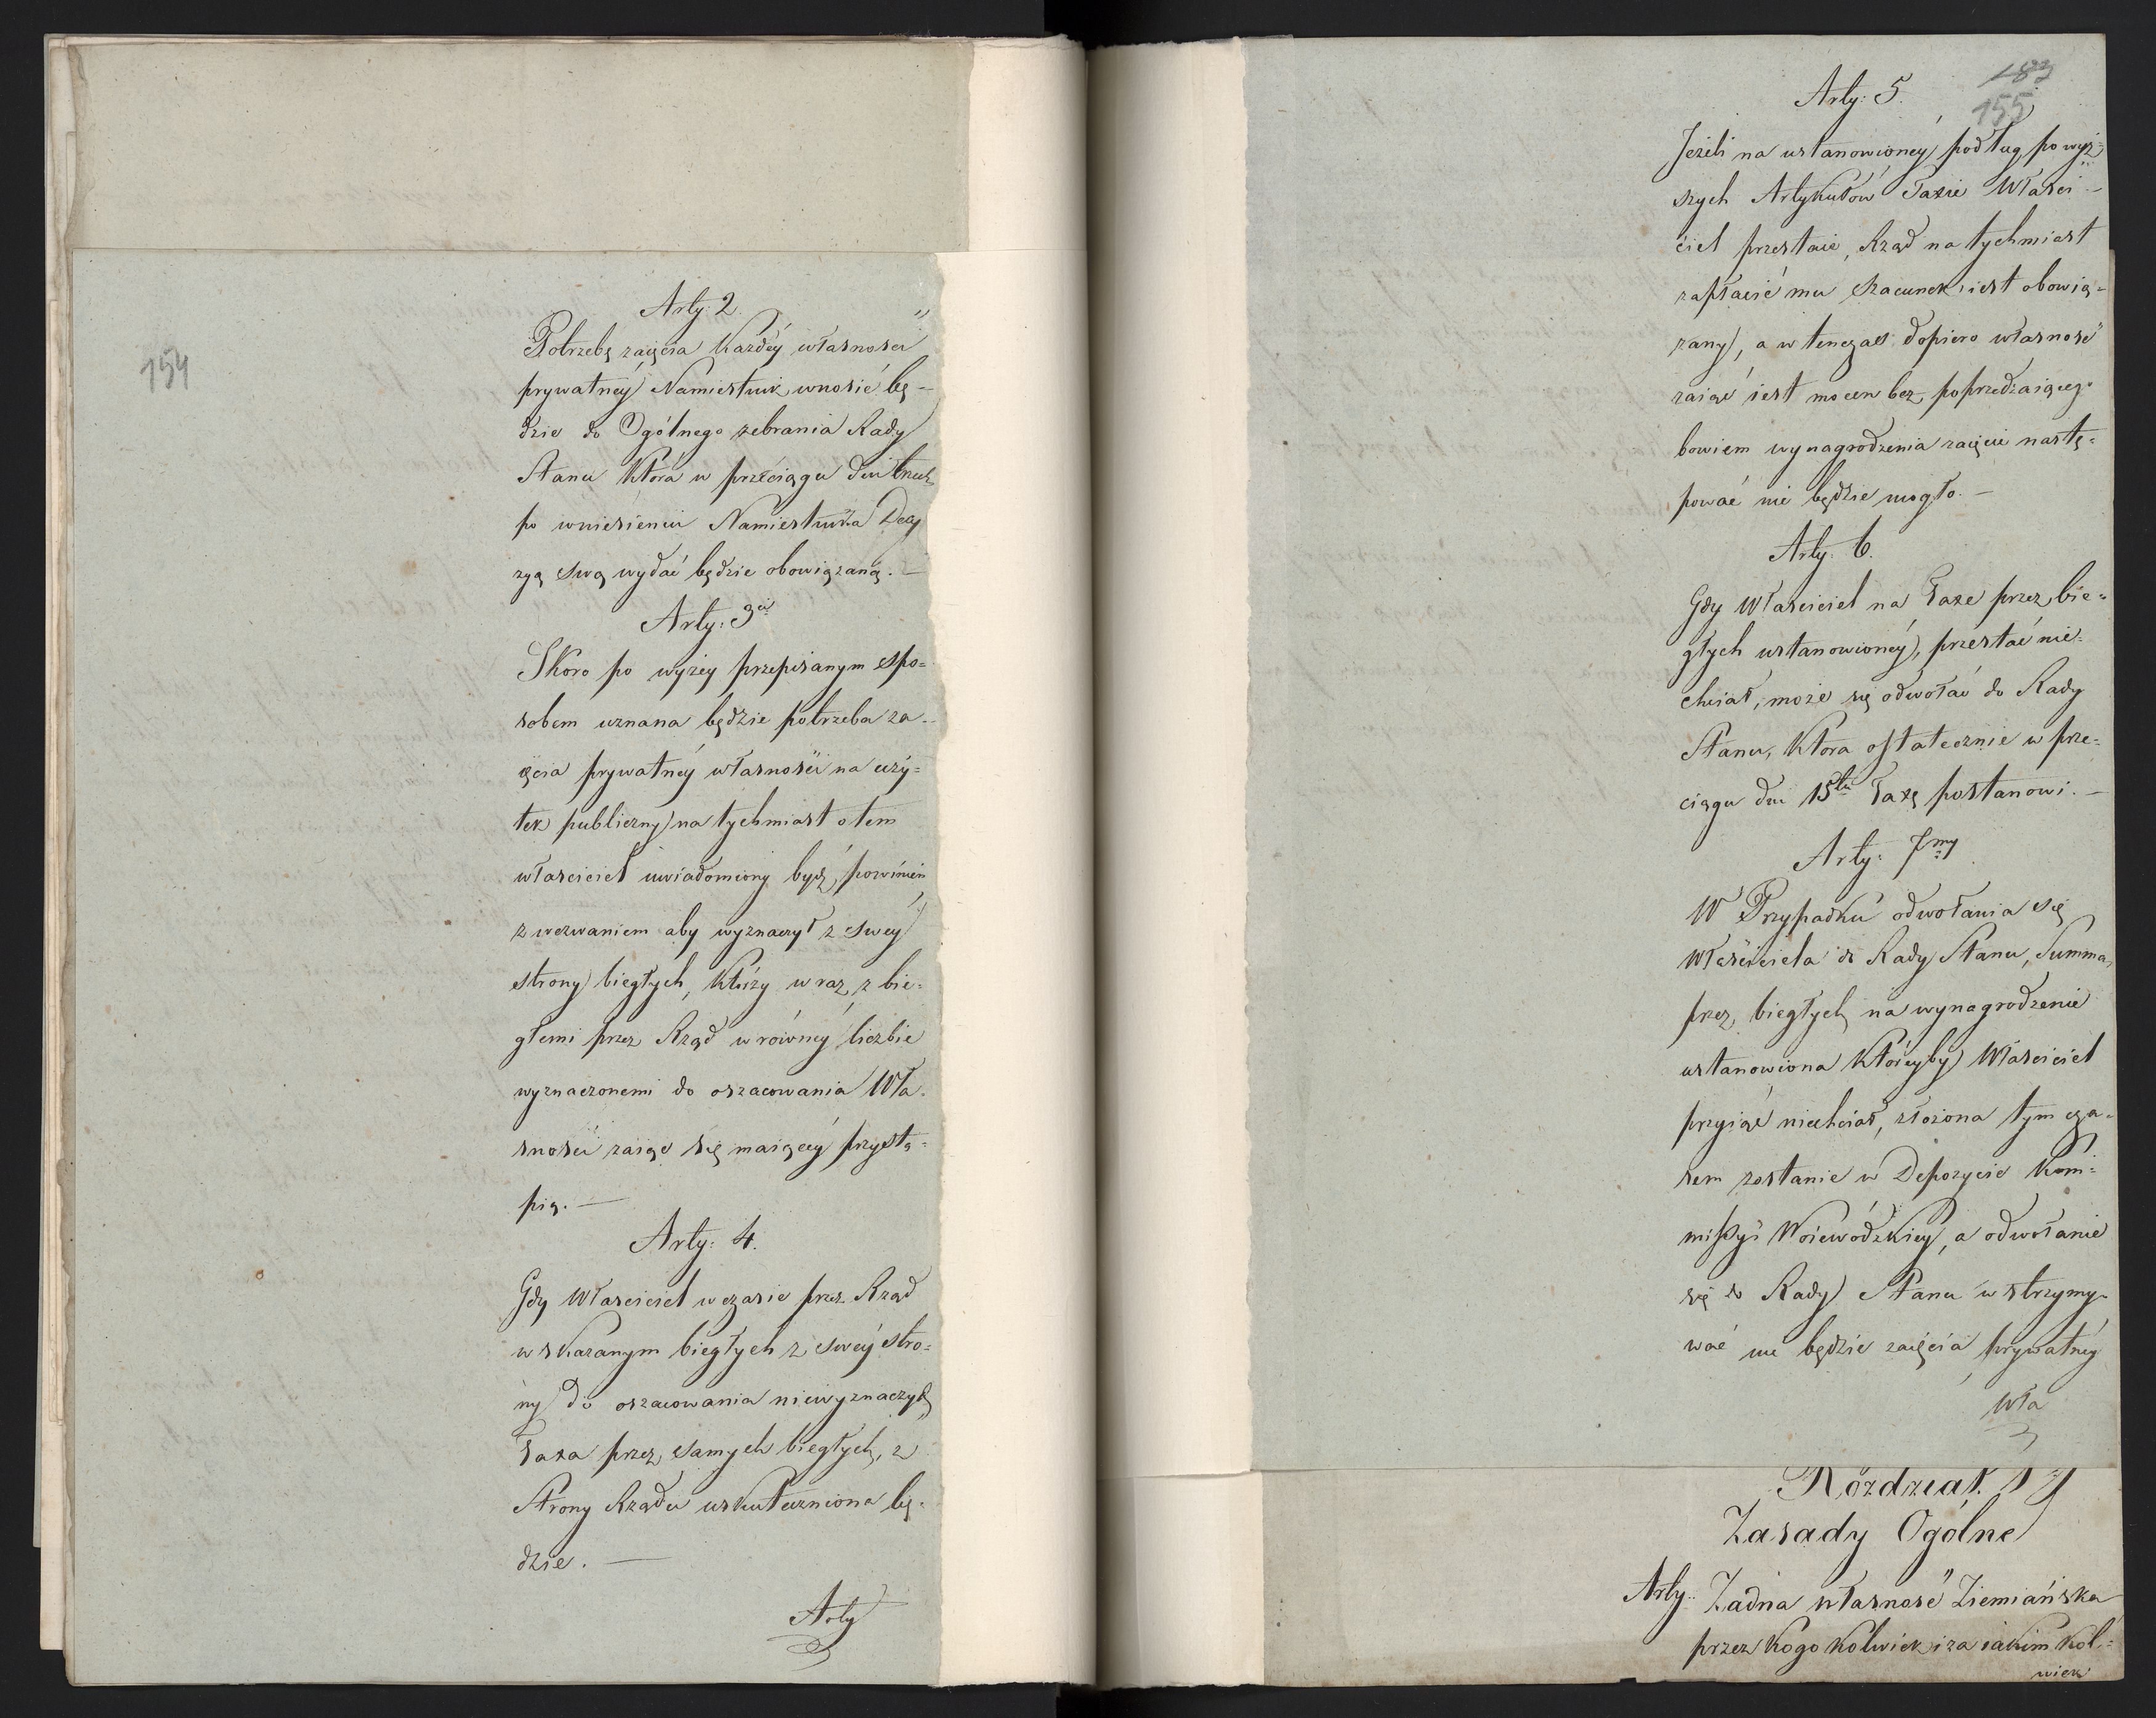 154
Arty: 2.
Potrzebę zaięcia każdéy własności
prywatnéy Namiestnik wnosić bę-
dzie do Ogólnego zebrania Rady
Stanu która w przeciągu dni trzech
po wniesieniu Namiestnika Decy
zyą swą wydać będzie obowiązaną. —
Arty: 3ci
Skoro po wyżey przepisanym spo=
sobem uznana będzie potrzeba za-
ięcia prywatnéy własności na uży=
tek publiczny natychmiast o tem
własciciel uwiadomiony bydź powinien
z wezwaniem aby wyznaczył z swey
strony biegłych, którzy wraz z bie=
głemi przez Rząd w równéy liczbie
wyznaczonemi do oszacowania Wła-
sności zaiąć się maiącéy przystą=
pią. —
Arty: 4.
Gdy Własciciel w czasie przez Rząd
wskazanym biegłych z swéy stro=
ny do oszacowania niewyznaczył,
Taxa przez samych biegłych, z
Strony Rządu uskuteczniona bę=
dzie. —
Arty
183
155
Arty: 5.
Jeżeli na ustanowionéy podług powyż=
szych Artykułów Taxie Właści-
ciel przestaie, Rząd natychmiast
zapłacić mu szacunek iest obowią=
zany, a w tenczas dopiero własność
zaiąć iest mocen bez poprzedzaiącego
bowiem wynagrodzenia zaięcie nastę=
pować nie będzie mogło. —
Arty. 6.
Gdy Własciciel na Taxe przez bie=
głych ustanowionéy, przestać nie=
chciał, może się odwołać do Rady
Stanu, która ostatecznie w prze=
ciągu dni 15tu Taxę postanowi. —
Arty: 7my
W Przypadku odwołania się
Właściciela do Rady Stanu, Summa
przez biegłych na wynagrodzenie
ustanowiona któreyby Własciciel
przyiąć niechciał, złożona tym cza=
sem zostanie w Depozycie Kom=
missyi Woiewódzkiey, a odwołanie
się do Rady Stanu wstrzymy=
wać nie będzie zaięcia prywatnéy
Wła
Rozdział. IV
Zasady Ogólne
Arty: Żadna własność Ziemiańska
przez kogokolwiek i za iakim kol=
wiek